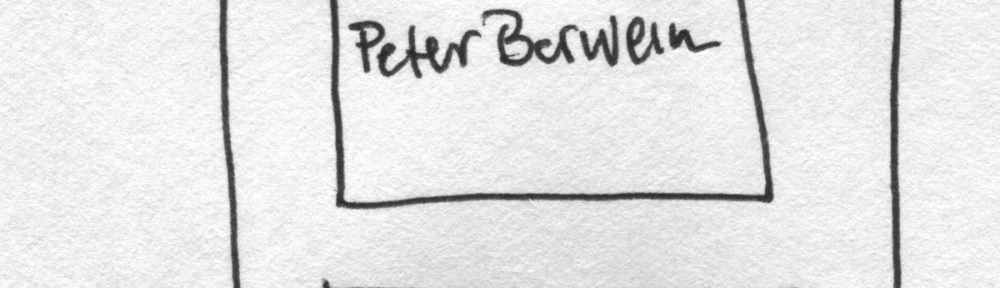 Peter Berwein